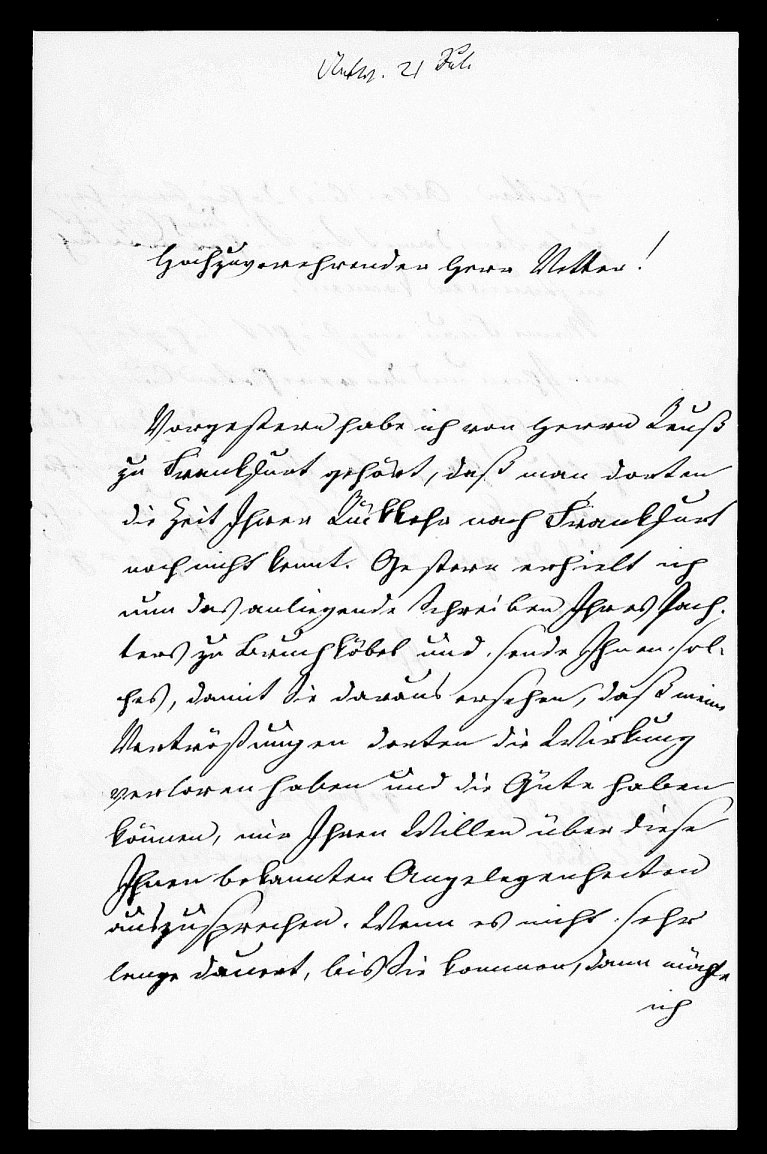 Antw. 21 Juli
Hochzuverehrender Herr Vetter!
Vorgestern habe ich von Herrn Reuß
zu Frankfurt gehört, daß man dorten
die Zeit Ihrer Rückkehr nach Frankfurt
noch nicht kennt. Gestern erhielt ich
nun das anliegende Schreiben Ihres Pach-
ters zu Bruchköbel und sende Ihnen sol-
ches, damit Sie daraus ersehen, daß meine
Vertröstungen dorten die Wirkung
verloren haben und die Güte haben
können, mir Ihren Willen über diese
Ihnen bekannten Angelegenheiten
auszusprechen. Wenn es nicht sehr
lange dauert, bis Sie kommen, dann möchte
ich